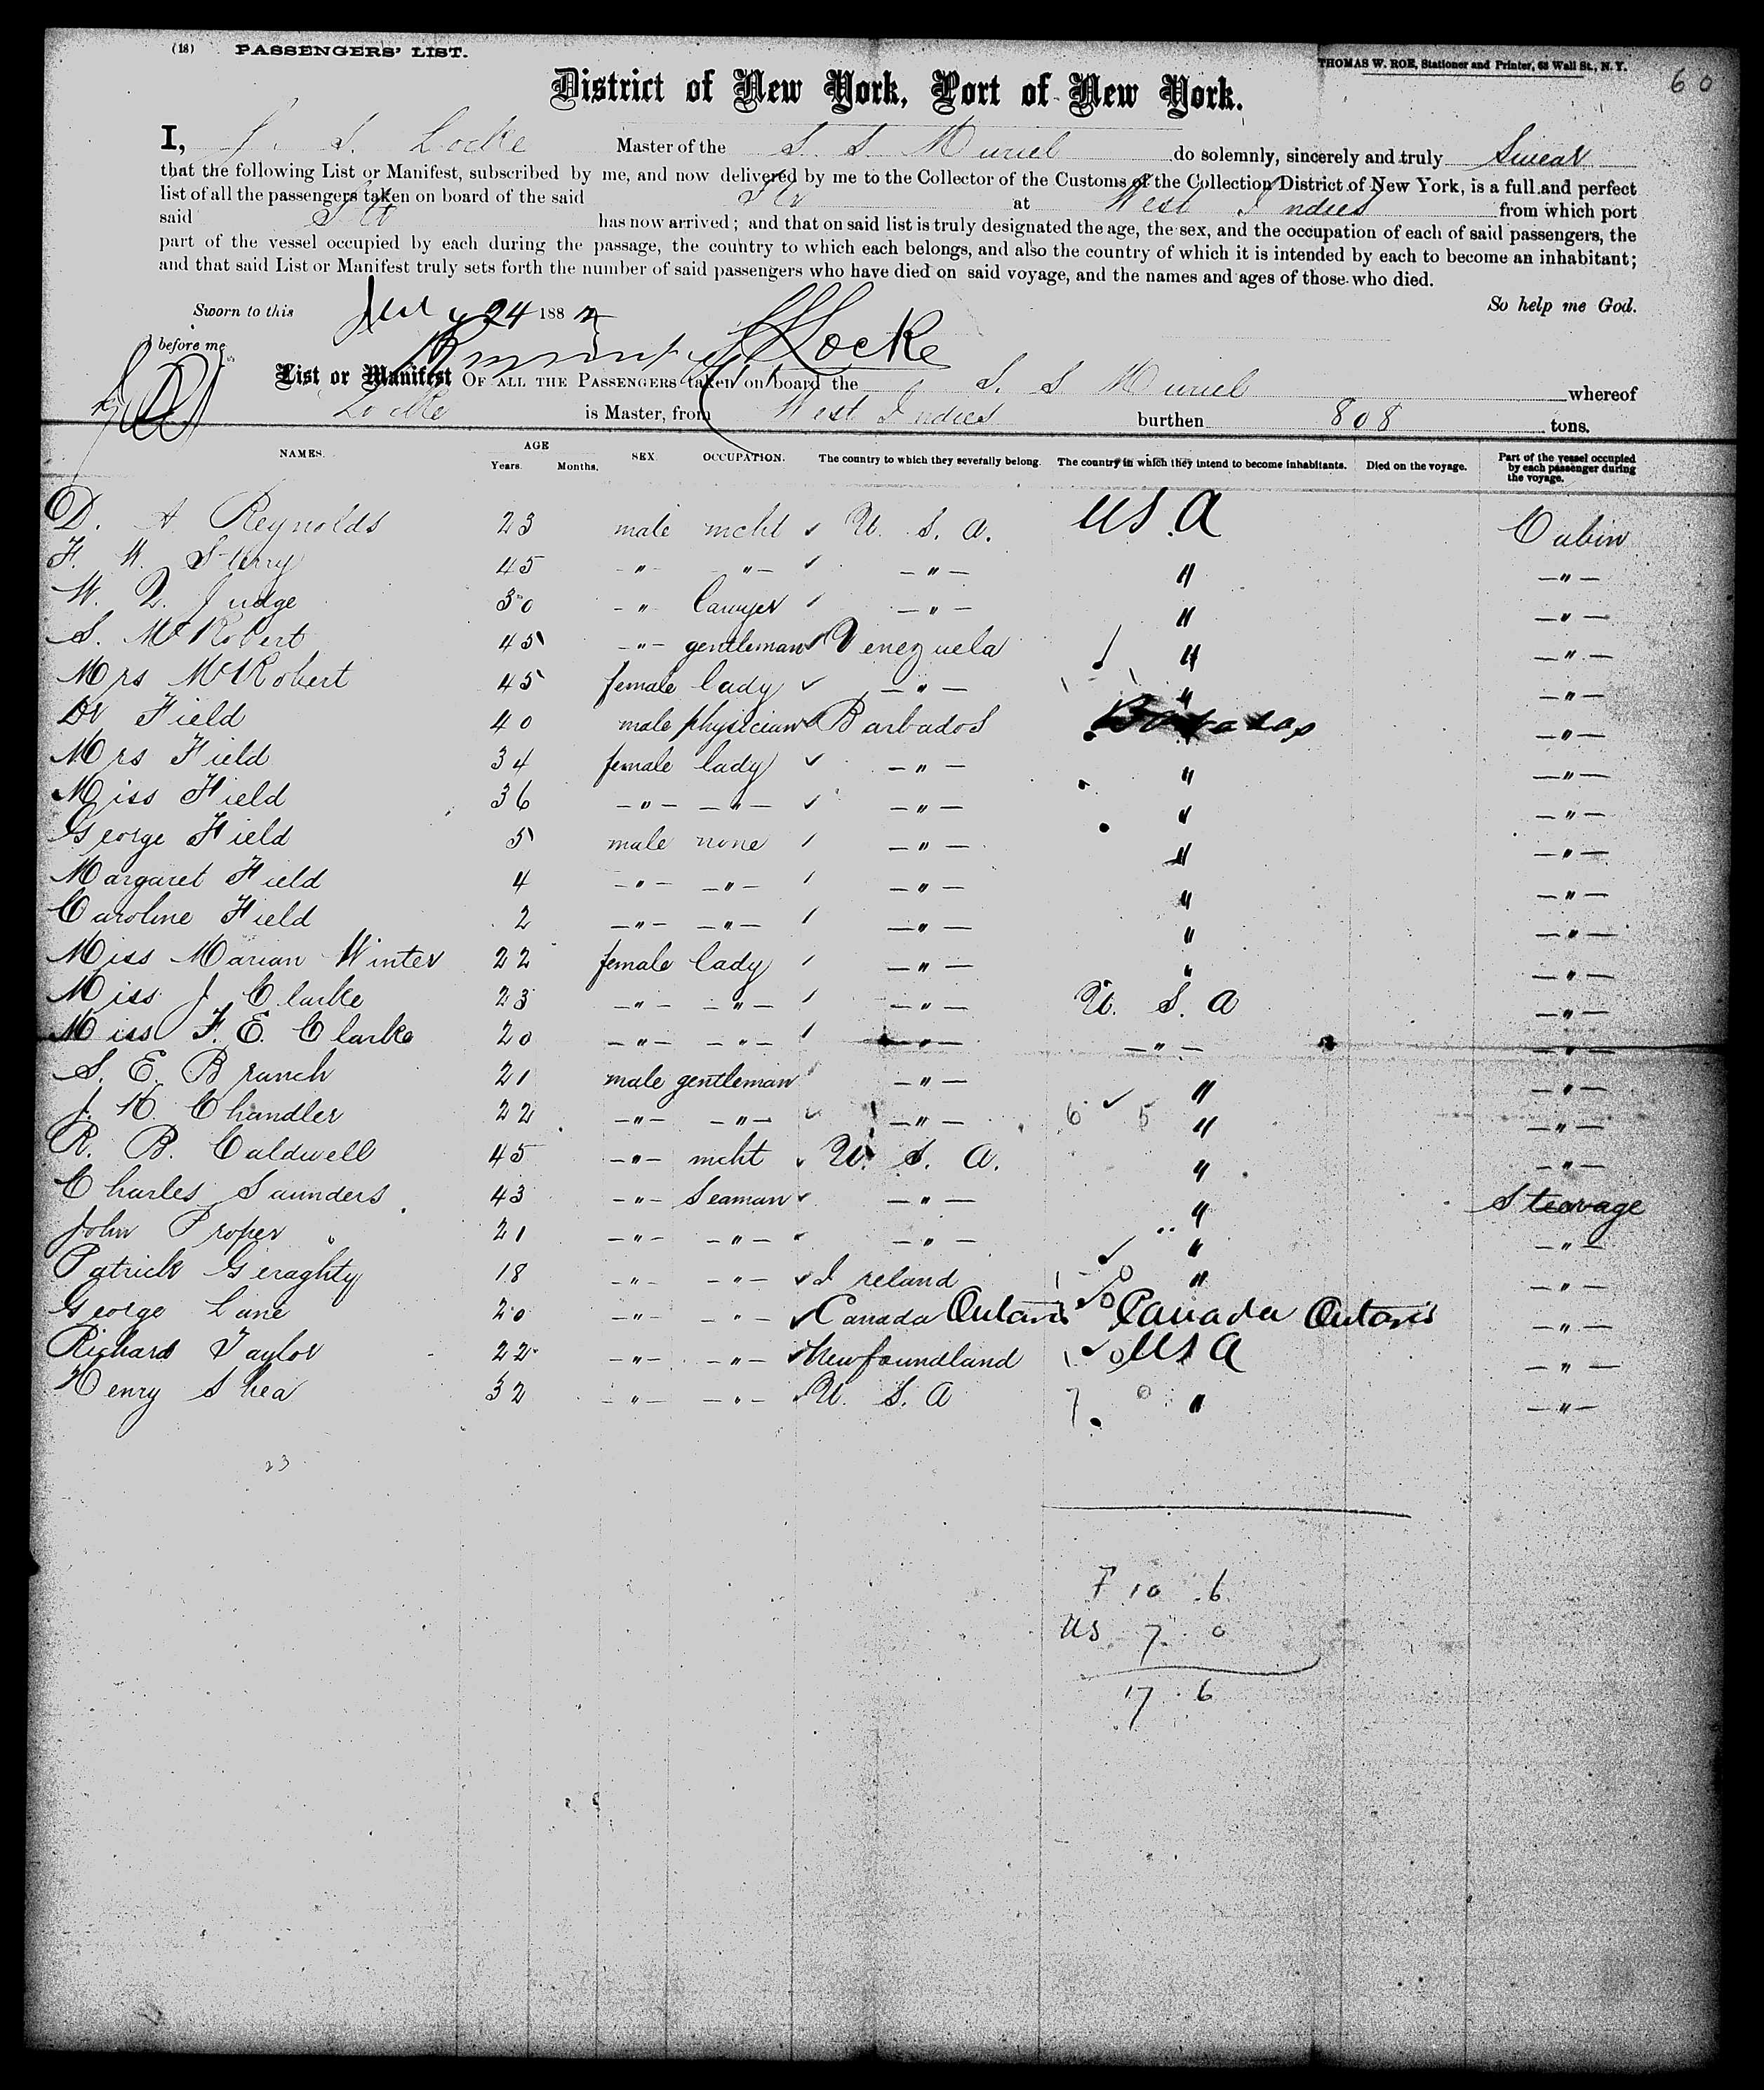 (18) PASSENGERS' LIST.
THOMAS W. ROE, Stationer and Printer, 63 Wall St., N. Y.
60
District of New York, Port of New York.
I, J. S. Locke Master of the S. S. Muriel do solemnly, sincerely and truly Swear
that the following List or Manifest, subscribed by me, and now delivered by me to the Collector of the Customs of the Collection District of New York, is a full and perfect
list of all the passengers taken on board of the said Str at West Indies from which port
said Str has now arrived; and that on said list is truly designated the age, the sex, and the occupation of each of said passengers, the
part of the vessel occupied by each during the passage, the country to which each belongs, and also the country of which it is intended by each to become an inhabitant;
and that said List or Manifest truly sets forth the number of said passengers who have died on said voyage, and the names and ages of those who died.
So help me God.
Sworn to this July 24 1882
before me
Locke
List or Manifest OF ALL THE PASSENGERS taken on board the S. S Muriel whereof
Locke is Master, from West Indies burthen 808 tons.
NAMES. AGE Years. Months. SEX OCCUPATION. The country to which they severally belong. The country in which they intend to become inhabitants. Died on the voyage. Part of the vessel occupied by each passenger during the voyage.
D. A. Reynolds 23 male mcht U. S. A. USA Cabin
F. W. Sterry 45 " " " " "
W. Q. Judge 30 " lawyer " " "
S. McRobert 45 " gentleman Venezuela " "
Mrs McRobert 45 female lady " " "
Dr Field 40 male physician Barbados "
Mrs Field 34 female lady " " "
Miss Field 36 " " " " "
George Field 5 male none " " "
Margaret Field 4 " " " " "
Caroline Field 2 " " " " "
Miss Marian Winter 22 female lady " " "
Miss J Clarke 23 " " " U. S. A "
Miss F. E. Clarke 20 " " " " "
S. E. Branch 21 male gentleman " " "
J. H. Chandler 22 " " " 6 5 " "
R. B. Caldwell 45 " mcht U. S. A. " "
Charles Saunders 43 " Seaman " " Steerage
John Proper 21 " " " " "
Patrick Geraghty 18 " " Ireland " "
George Lane 20 " " Canada Ontario Canada Ontario "
Richard Taylor 22 " " Newfoundland USA "
Henry Shea 32 " " U. S. A 7 0 " "
23
F 10 6
US 7 0
17 6